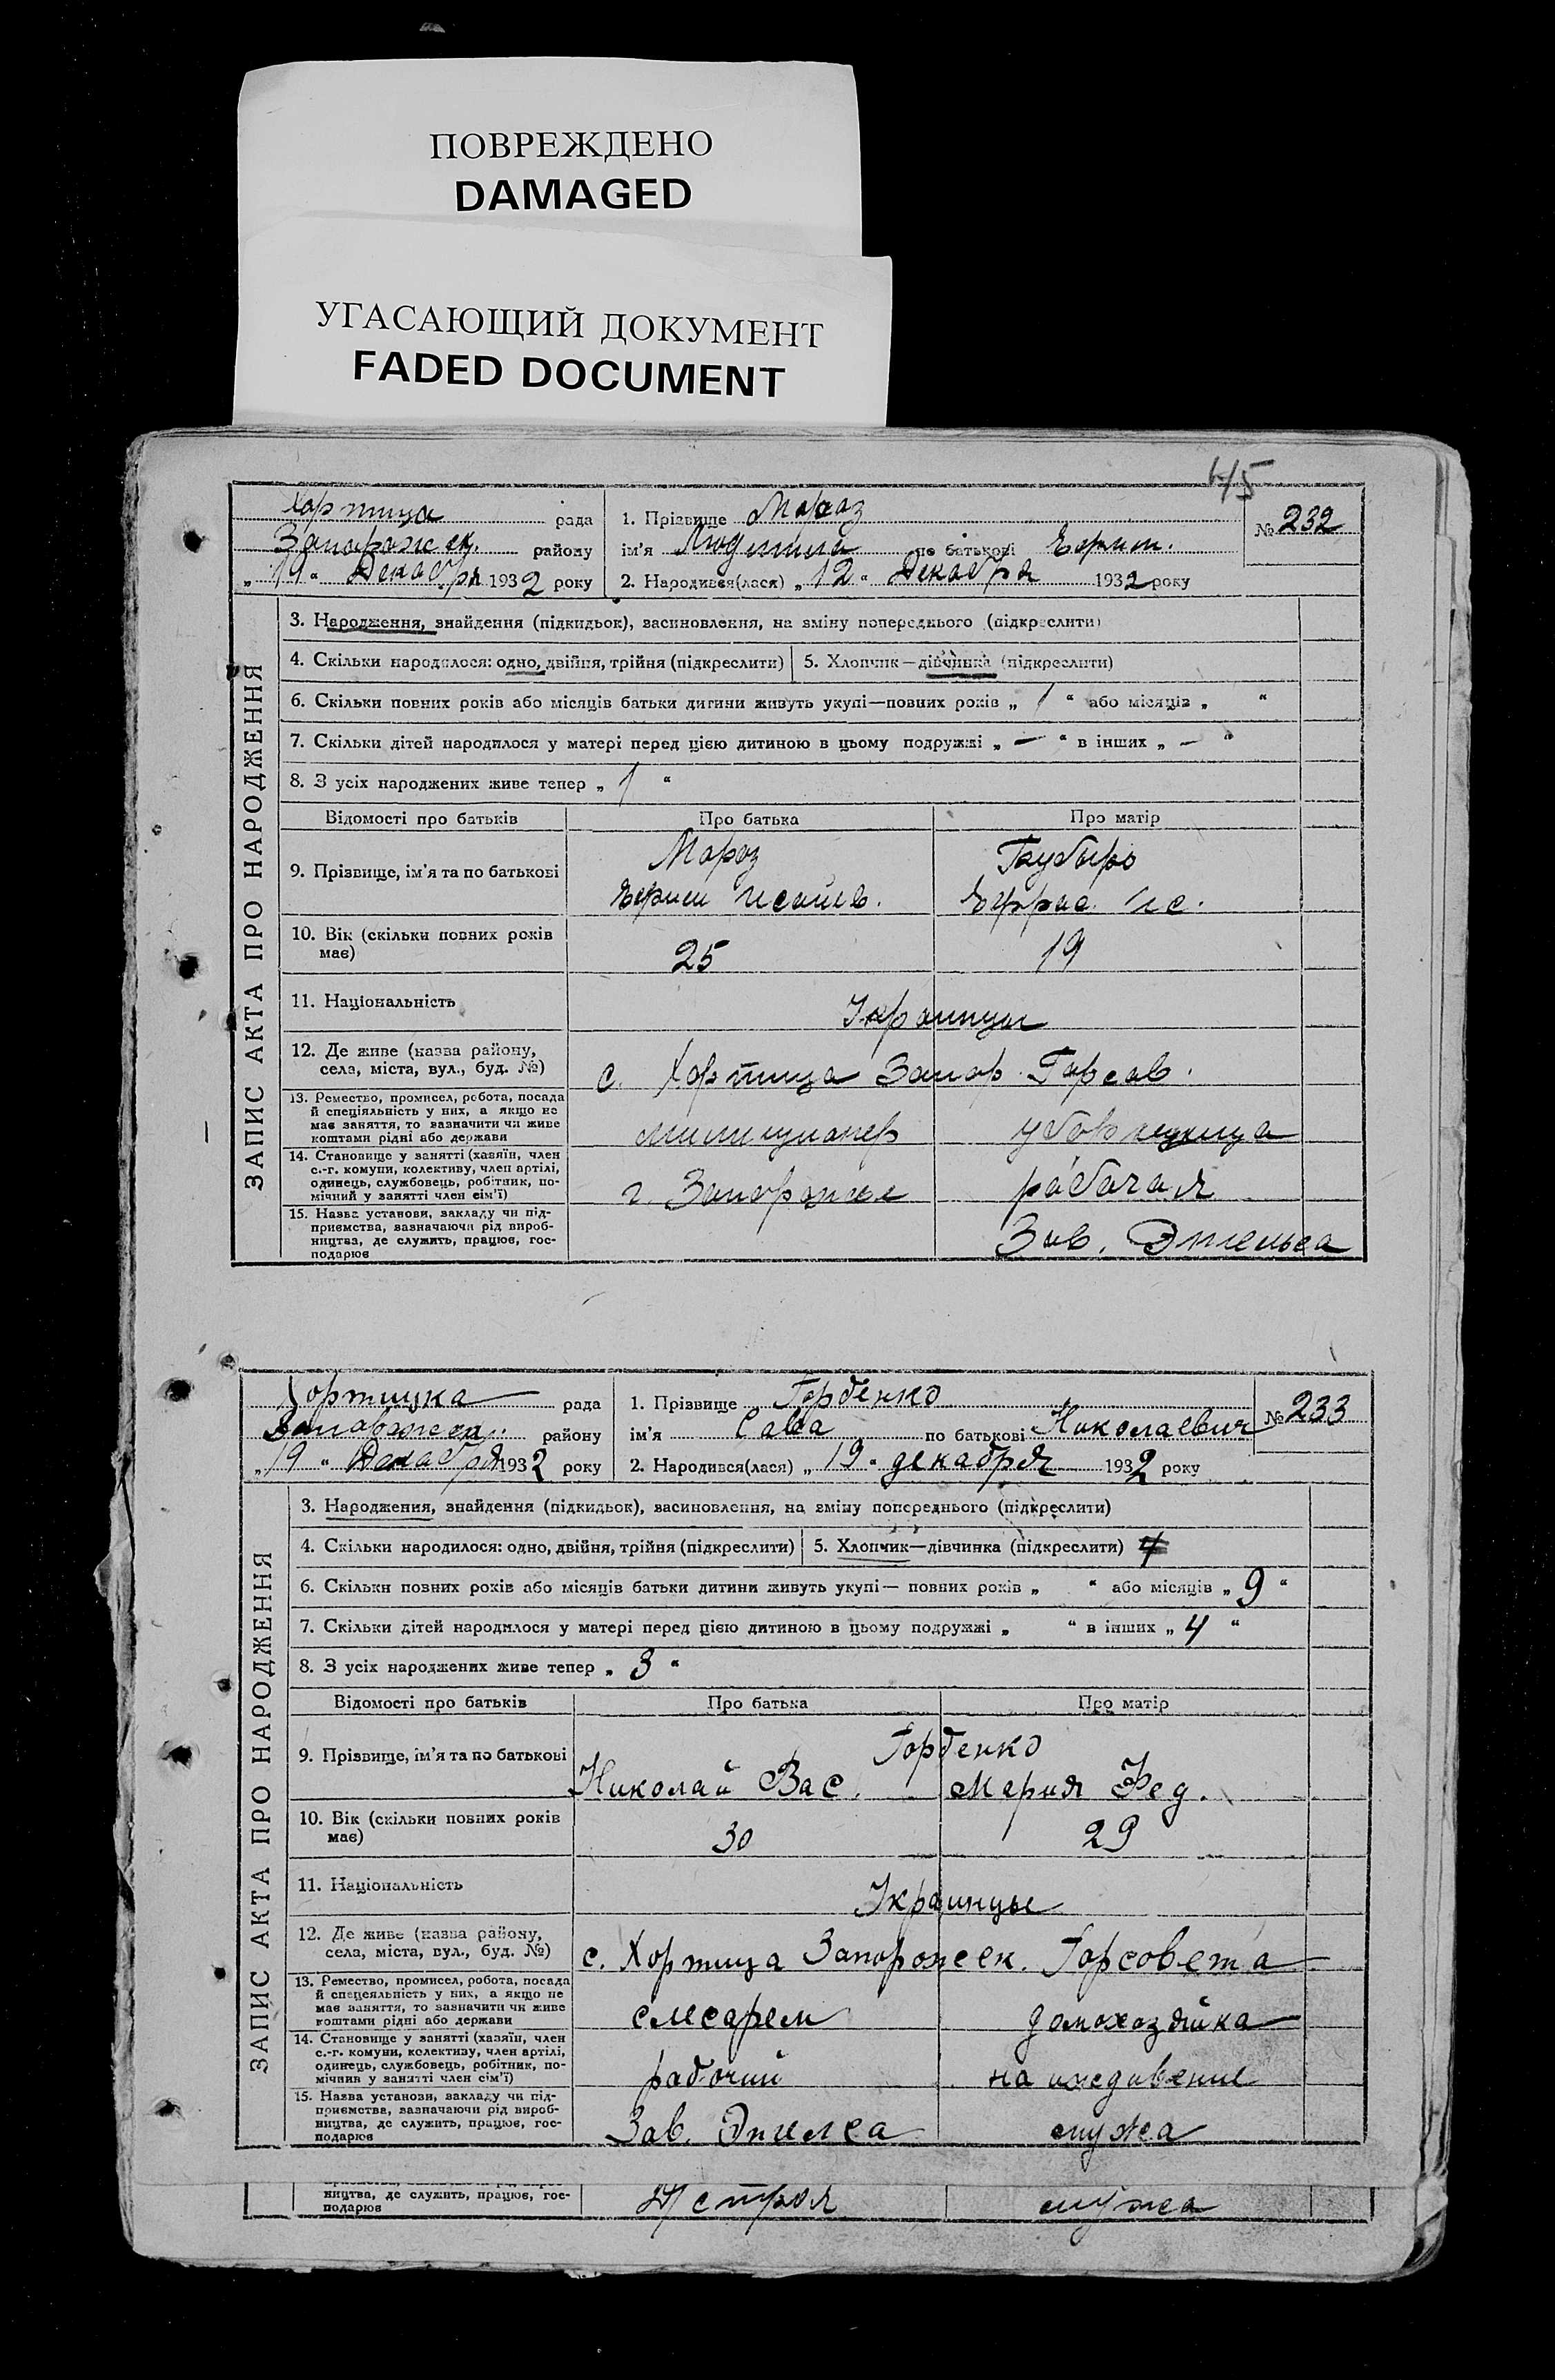 ПОВРЕЖДЕНО
DAMAGED
УГАСАЮЩИЙ ДОКУМЕНТ
FADED DOCUMENT
Хортица рада
Запорожск. району
„ 19 “ Декабря 1932 року
1. Прізвище Мороз
ім'я по батькові
2. Народився(лася) „ 12 “ Декабря 1932 року
№ 232
ЗАПИС АКТА ПРО НАРОДЖЕННЯ
3. Народження, знайдення (підкидьок), засиновлення, на зміну попереднього (підкреслити)
4. Скільки народилося: одно, двійня, трійня (підкреслити)
5. Хлопчик—дівчинка (підкреслити)
6. Скільки повних років або місяців батьки дитини живуть укупі—повних років „ 1 “ або місяців „ “
7. Скільки дітей народилося у матері перед цією дитиною в цьому подружжі „ — “ в інших „ — “
8. З усіх народжених живе тепер „ 1 “
Відомості про батьків Про батька Про матір
9. Прізвище, ім'я та по батькові
Мороз
10. Вік (скільки повних років має)
25 19
11. Національність
Украинцы
12. Де живе (назва району, села, міста, вул., буд. №)
с. Хортица Запор. Горсов.
13. Ремество, промисел, робота, посада
й спеціяльність у них, а якщо не
має заняття, то зазначити чи живе
коштами рідні або держави
милиционер уборщица
14. Становище у занятті (хазяїн, член
с.-г. комуни, колективу, член артілі,
одинець, службовець, робітник, по-
мічний у занятті член сім'ї)
г. Запорожье рабочая
15. Назва установи, закладу чи під-
приємства, зазначаючи рід вироб-
ництва, де служить, працює, гос-
подарює
Зав. Энгельса
Хортицка рада
Запорожск. району
„ 19 “ Декабря 1932 року
1. Прізвище Горбенко
ім'я Сава по батькові Николаевич
2. Народився(лася) „ 19 “ декабря 1932 року
№ 233
ЗАПИС АКТА ПРО НАРОДЖЕННЯ
3. Народження, знайдення (підкидьок), засиновлення, на зміну попереднього (підкреслити)
4. Скільки народилося: одно, двійня, трійня (підкреслити)
5. Хлопчик—дівчинка (підкреслити)
6. Скільки повних років або місяців батьки дитини живуть укупі— повних років „ “ або місяців „ 9 “
7. Скільки дітей народилося у матері перед цією дитиною в цьому подружжі „ “ в інших „ 4 “
8. З усіх народжених живе тепер „ 3 “
Відомості про батьків Про батька Про матір
9. Прізвище, ім'я та по батькові
Горбенко
Николай Вас. Мария Фед.
10. Вік (скільки повних років має)
30 29
11. Національність
Украинцы
12. Де живе (назва району, села, міста, вул., буд. №)
с. Хортица Запорожск. Горсовета
13. Ремество, промисел, робота, посада
й спецеяльність у них, а якщо не
має заняття, то зазначити чи живе
коштами рідні або держави
слесарем домохозяйка
14. Становище у занятті (хазяїн, член
с.-г. комуни, колективу, член артілі,
одинець, службовець, робітник, по-
мічний у занятті член сім'ї)
рабочий на иждивение
15. Назва установи, закладу чи під-
приємства, зазначаючи рід вироб-
ництва, де служить, працює, гос-
подарює
Зав. Энгелса мужа
ництва, де служить, працює, гос-
подарює
мужа